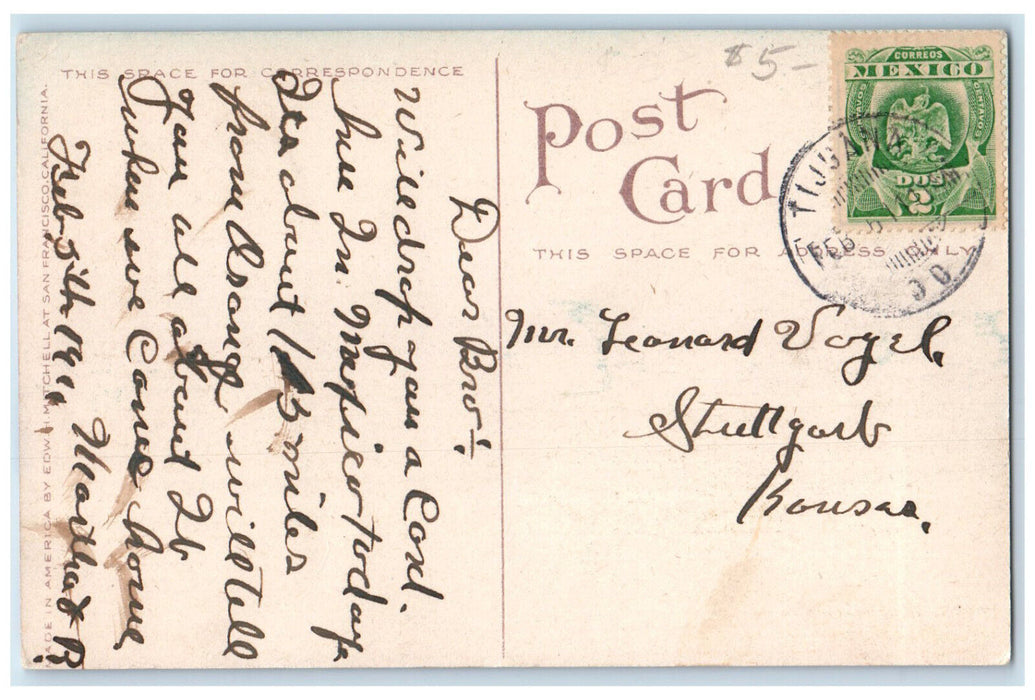 THIS SPACE FOR CORRESPONDENCE
Post
Card
THIS SPACE FOR ADDRESS ONLY
$5-
CORREOS
MEXICO
CENTAVOS
CENTAVOS
DOS
2
TIJUANA
FEB
Mr. Leonard Vogel.
Stuttgart
Kansas.
Dear Bro:
Will drop you a Card.
here In Mexico today.
Its about 113 miles
from Orange will tell
you all about It
when we Come home
Feb 5th 1911 Martha & B
MADE IN AMERICA BY EDW. H. MITCHELL AT SAN FRANCISCO, CALIFORNIA.